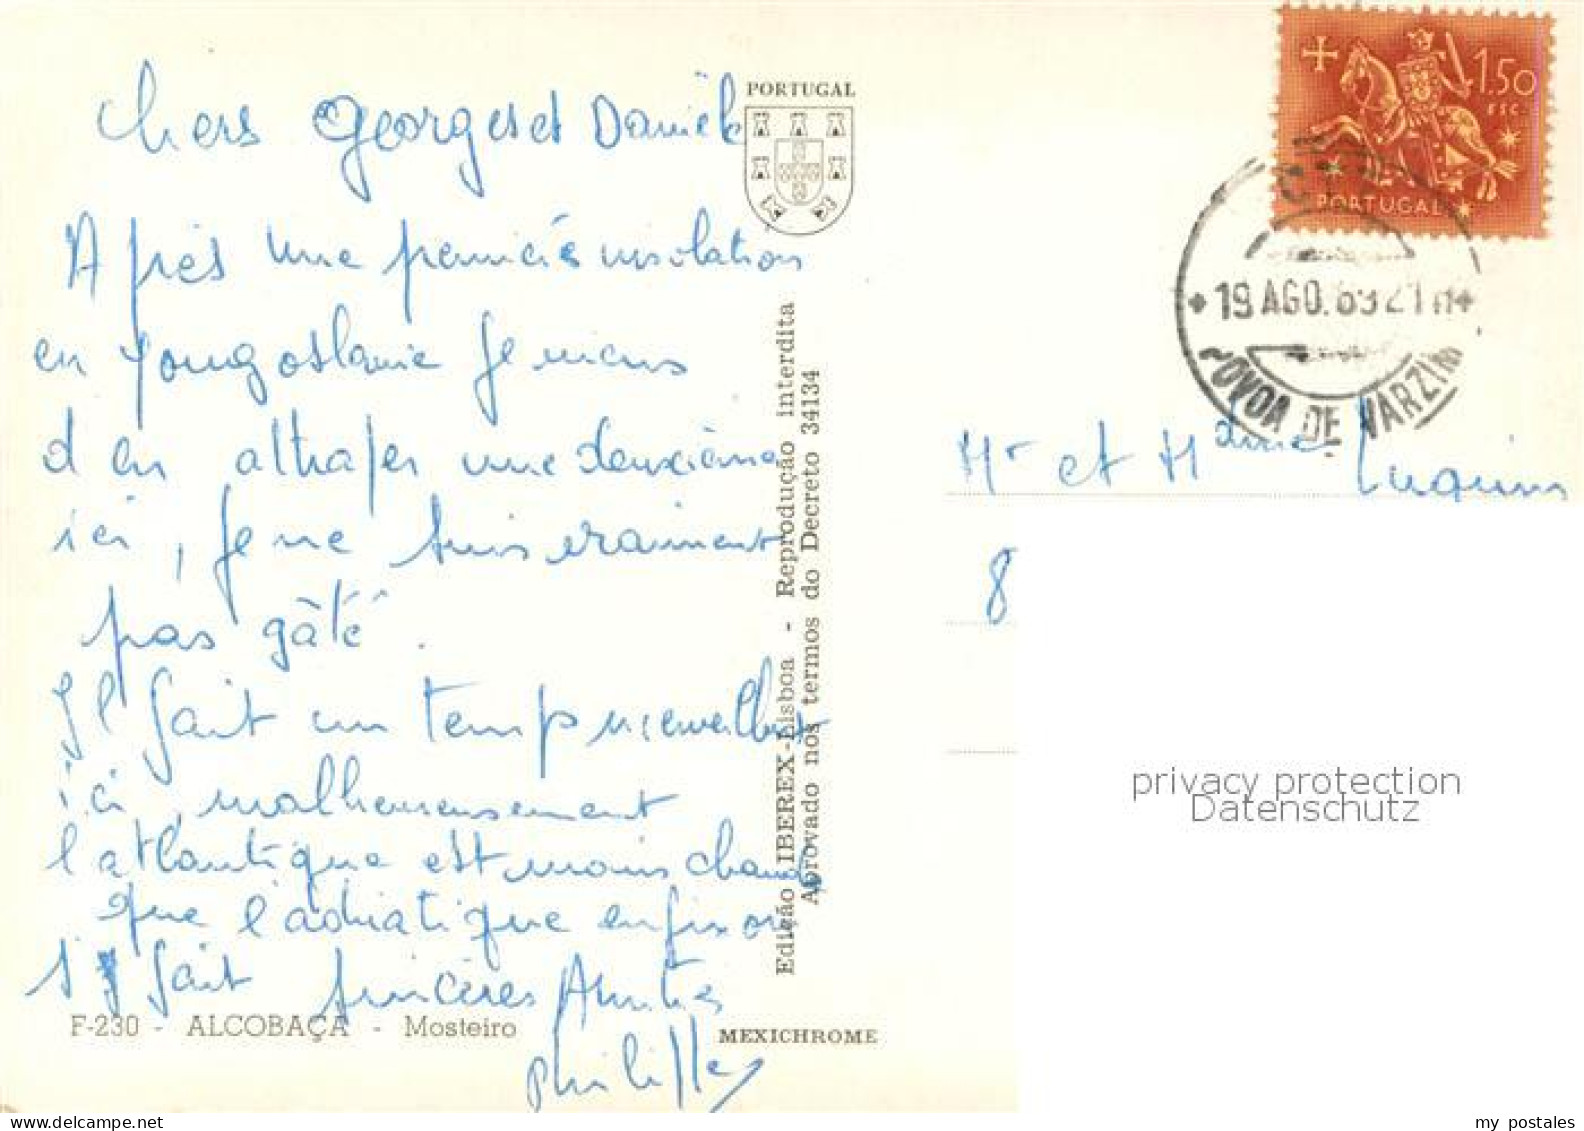 Chers Georges et Danièle
PORTUGAL
Après une première insolation
en Yougoslavie je viens
d'en attraper une deuxième
ici, je ne suis vraiment
pas gâté.
Il fait un temps merveilleux
ici, malheureusement
l'atlantique est moins chaude
que l'adriatique enfin on
s'y fait sincères Amitiés
Philippe
F-230 - ALCOBAÇA - Mosteiro
MEXICHROME
Edição IBEREX-Lisboa - Reprodução interdita
Aprovado nos termos do Decreto 34134
1$50
ESC.
PORTUGAL
CTT
19 AGO. 69 21H
POVOA DE VARZIM
Mr et Mdme
8
privacy protection
Datenschutz
my postales